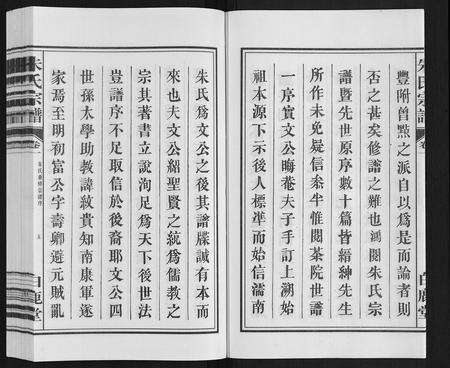 豐附曾點之派自以爲是而論者則
否之甚矣修譜之難也溯閱朱氏宗
譜曁先世原序數十篇皆縉紳先生
所作未免疑信叅半惟閱茶院世譜
一序實文公晦菴夫子手訂上溯始
祖本源下示後人標準而始信濡南
朱氏爲文公之後其譜牒誠有本而
來也夫文公紹聖賢之統爲儒教之
宗其著書立說洵足爲天下後世法
豈譜序不足取信於後裔耶文公四
世孫太學助教諱紋貴知南康軍遂
家焉至明初富公字壽卿避元賊亂
朱氏宗譜
卷一
朱氏重修宗譜序
五
白鹿堂
朱氏宗譜
卷
白鹿堂